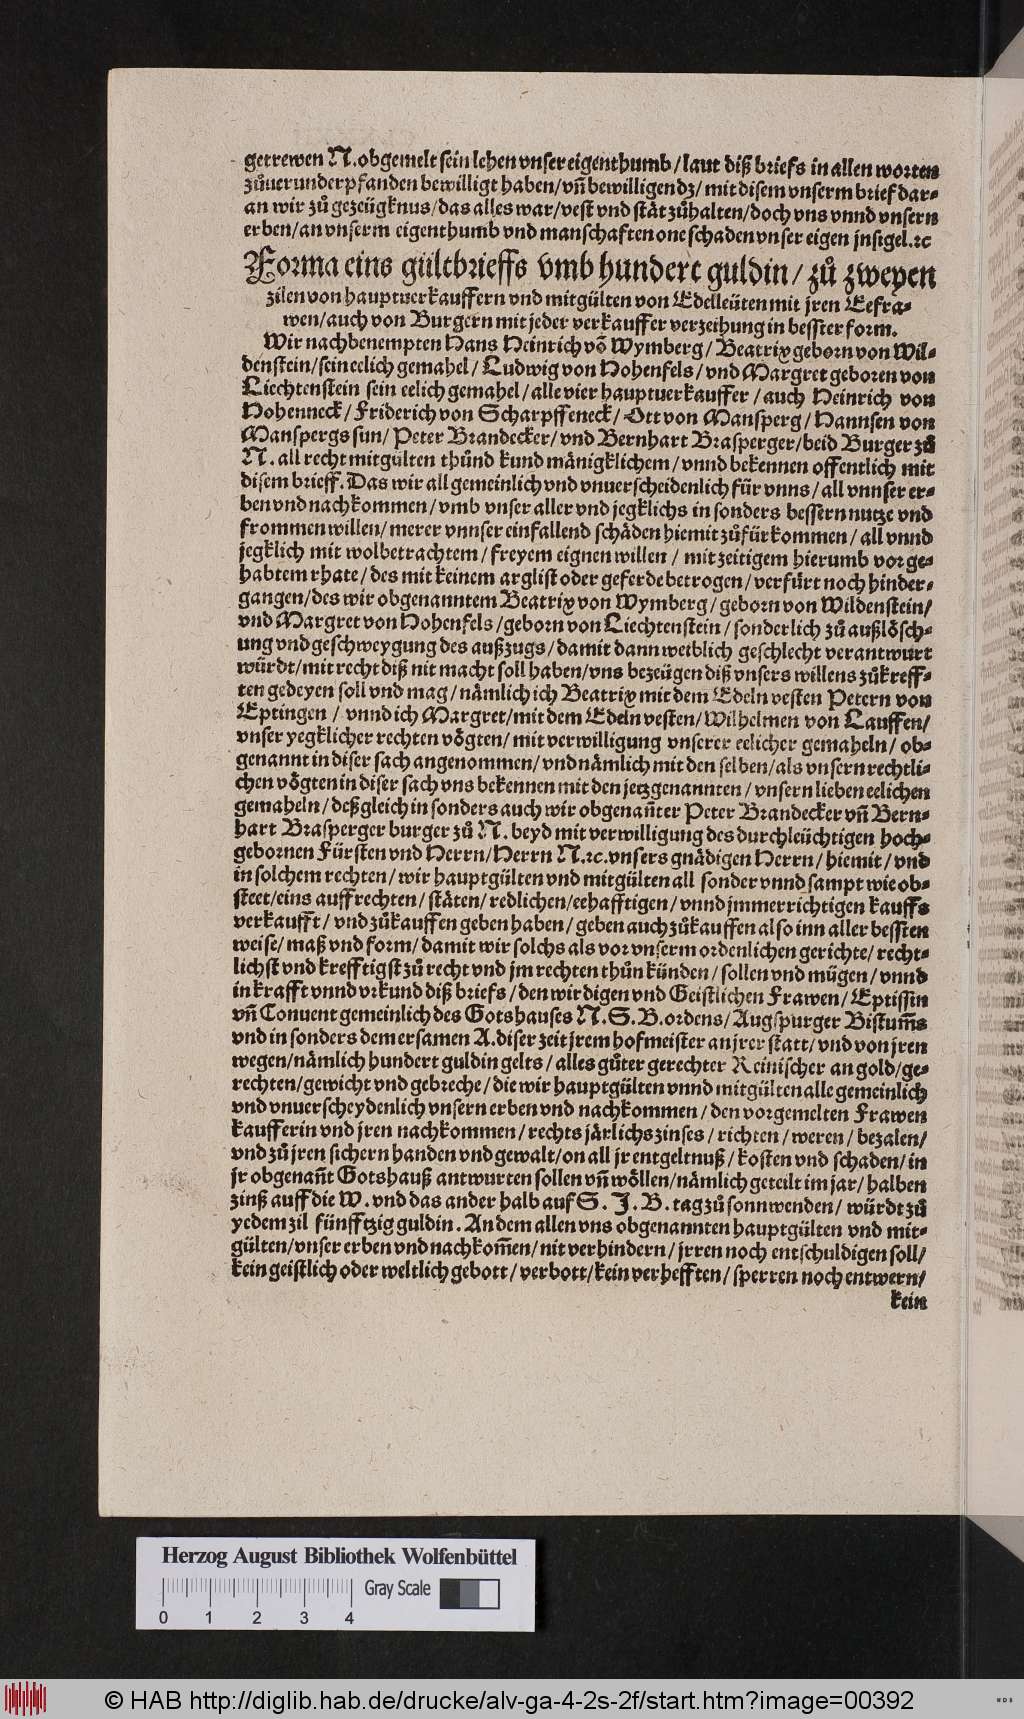 getrewen N. obgemelt sein lehen vnser eigenthumb / laut diß briefs in allen worten
zůuerunderpfanden bewilligt haben / vñ bewilligen dz / mit disem vnserm brief dar⸗
an wir zů gezeügknus / das alles war / vest vnd stät zůhalten / doch vns vnnd vnsern
erben / an vnserm eigenthumb vnd manschafften one schaden vnser eigen jnsigel. ꝛc
Forma eins gültbrieffs vmb hundert guldin / zů zweyen
zilen von hauptuerkauffern vnd mitgülten von Edelleüten mit jren Eefra⸗
wen / auch von Burgern mit jeder verkauffer verzeihung in besster form.
Wir nachbenempten Hans Heinrich võ Wymberg / Beatrix geborn von Wil⸗
denstein / sein eelich gemahel / Ludwig von Hohenfels / vnd Margret geboren von
Liechtenstein sein eelich gemahel / alle vier hauptuerkauffer / auch Heinrich von
Hohenneck / Friderich von Scharpffeneck / Ott von Mansperg / Hannsen von
Manspergs sun / Peter Brandecker / vnd Bernhart Brasperger / beid Burger zů
N. all recht mitgülten thůnd kund mänigklichem / vnnd bekennen offentlich mit
disem brieff. Das wir all gemeinlich vnd vnuerscheidenlich für vnns / all vnnser er⸗
ben vnd nachkommen / vmb vnser aller vnd jegklichs in sonders bessern nutze vnd
frommen willen / merer vnnser einfallend schäden hiemit zůfürkommen / all vnnd
jegklich mit wolbetrachtem / freyem eignen willen / mit zeitigem hierumb vorge⸗
habtem rhate / des mit keinem arglist oder geferde betrogen / verfürt noch hinder⸗
gangen / des wir obgenanntem Beatrix von Wymberg / geborn von Wildenstein /
vnd Margret von Hohenfels / geborn von Liechtenstein / sonderlich zů außlösch⸗
ung vnd geschweygung des außzugs / damit dann weiblich geschlecht verantwurt
würdt / mit recht diß nit macht soll haben / vns bezeügen diß vnsers willens zůkreff⸗
ten gedeyen soll vnd mag / nämlich ich Beatrix mit dem Edeln vesten Petern von
Eptingen / vnnd ich Margret / mit dem Edeln vesten / Wilhelmen von Lauffen /
vnser yegklicher rechten vögten / mit verwilligung vnserer eelicher gemaheln / ob⸗
genannt in diser sach angenommen / vnd nämlich mit den selben / als vnsern rechtli⸗
chen vögten in diser sach vns bekennen mit den jetzgenannten / vnsern lieben eelichen
gemaheln / deßgleich in sonders auch wir obgenañter Peter Brandecker vñ Bern⸗
hart Brasperger burger zů N. beyd mit verwilligung des durchleüchtigen hoch⸗
gebornen Fürsten vnd Herrn / Herrn N. ꝛc. vnsers gnädigen Herrn / hiemit / vnd
in solchem rechten / wir hauptgülten vnd mitgülten all sonder vnnd sampt wie ob⸗
steet / eins auffrechten / stäten / redlichen / eehafftigen / vnnd jmmerrichtigen kauffs
verkaufft / vnd zůkauffen geben haben / geben auch zůkauffen also inn aller bessten
weise / maß vnd form / damit wir solchs als vor vnserm ordenlichen gerichte / recht⸗
lichst vnd krefftigst zů recht vnd jm rechten thůn künden / sollen vnd mügen / vnnd
in krafft vnnd vrkund diß briefs / den wirdigen vnd Geistlichen Frawen / Eptissin
vñ Conuent gemeinlich des Gotshauses N. S. B. ordens / Augspurger Bistum̃s
vnd in sonders dem ersamen A. diser zeit jrem hofmeister an jrer statt / vnd von jren
wegen / nämlich hundert guldin gelts / alles gůter gerechter Reinischer an gold / ge⸗
rechten / gewicht vnd gebreche / die wir hauptgülten vnnd mitgülten alle gemeinlich
vnd vnuerscheydenlich vnsern erben vnd nachkommen / den vorgemelten Frawen
kaufferin vnd jren nachkommen / rechts järlichs zinses / richten / weren / bezalen /
vnd zů jren sichern handen vnd gewalt / on all jr entgeltnuß / kosten vnd schaden / in
jr obgenañt Gotshauß antwurten sollen vñ wöllen / nämlich geteilt im jar / halben
zinß auff die W. vnd das ander halb auf S. J. B. tag zů sonnwenden / würdt zů
yedem zil fünfftzig guldin. An dem allen vns obgenannten hauptgülten vnd mit⸗
gülten / vnser erben vnd nachkom̃en / nit verhindern / jrren noch entschuldigen soll /
kein geistlich oder weltlich gebott / verbott / kein verhefften / sperren noch entwern /
kein
Herzog August Bibliothek Wolfenbüttel
Gray Scale
0 1 2 3 4
© HAB http://diglib.hab.de/drucke/alv-ga-4-2s-2f/start.htm?image=00392